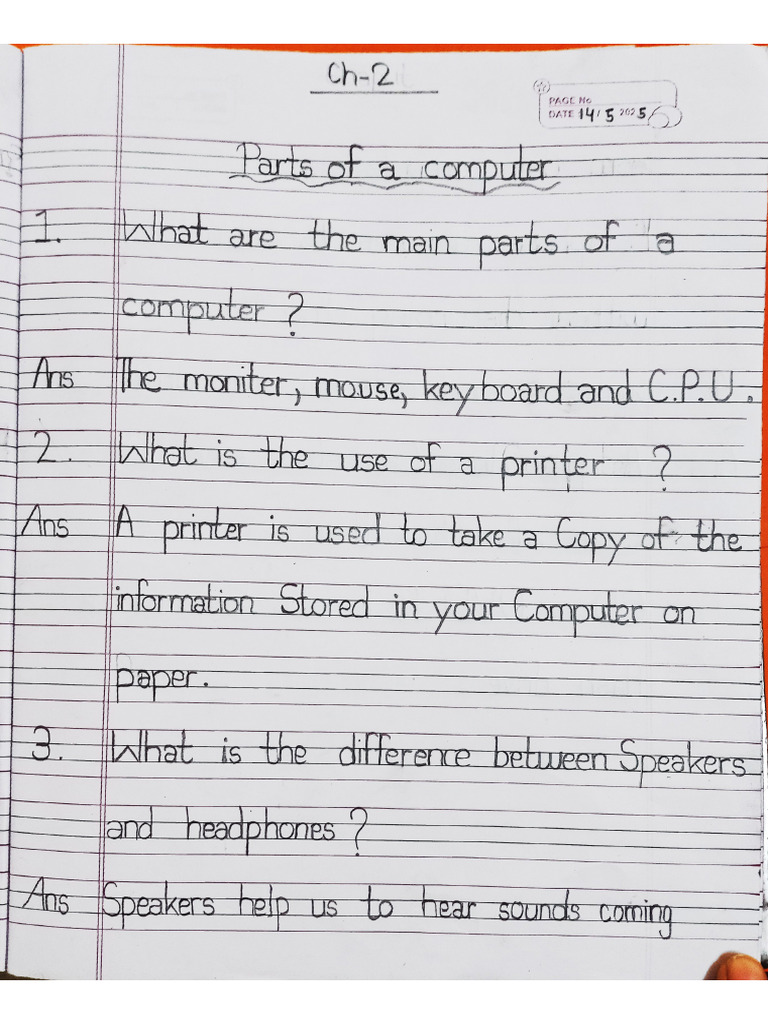 Ch-2
PAGE No
DATE 14/5 2025
Parts of a computer
1. What are the main parts of a
computer ?
Ans The moniter, mouse, keyboard and C.P.U.
2. What is the use of a printer ?
Ans A printer is used to take a Copy of the
information Stored in your Computer on
paper.
3. What is the difference between Speakers
and headphones ?
Ans Speakers help us to hear sounds coming